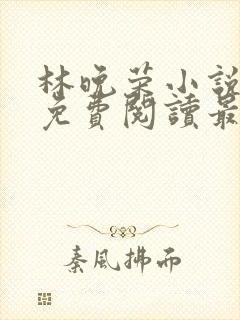 林晚荣小説
免費閱讀最
秦風拂而